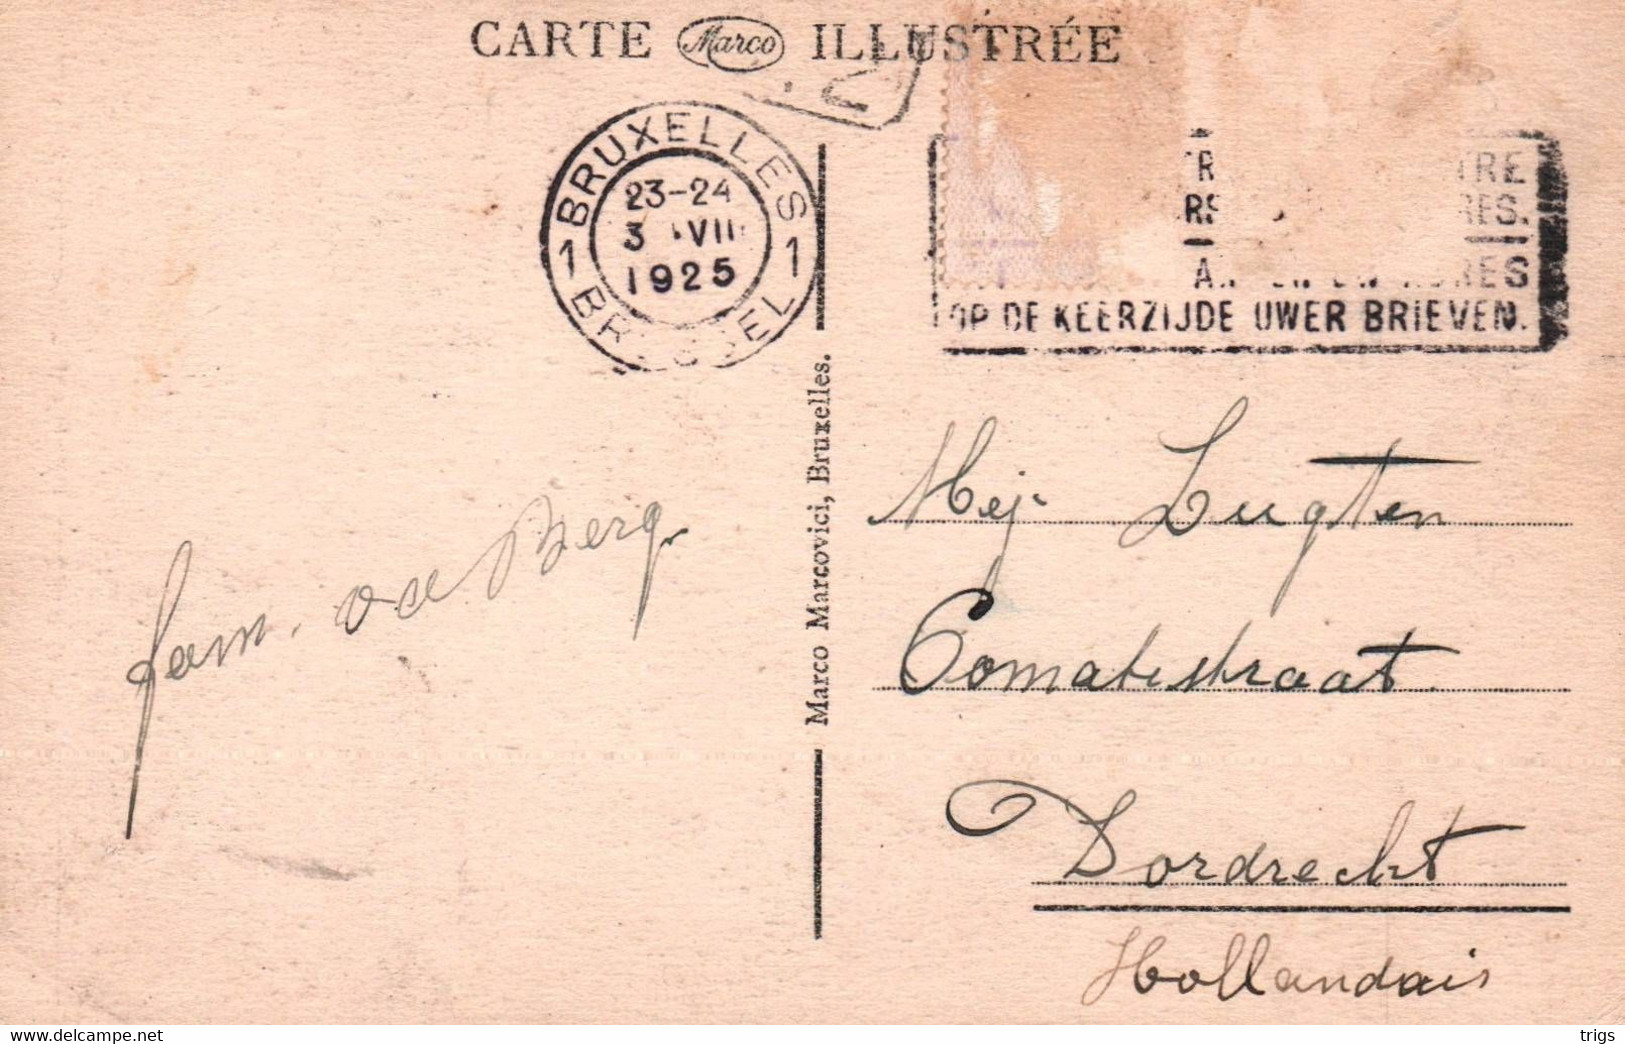 CARTE Marco ILLUSTRÉE
BRUXELLES
23-24
3 VII
1925
1 1
BRUSSEL
OP DE KEERZIJDE UWER BRIEVEN.
Marco Marcovici, Bruxelles.
fam. v d Berg.
Mej. Lugten
straat
Dordrecht
Hollandais
delcampe.net
trigs